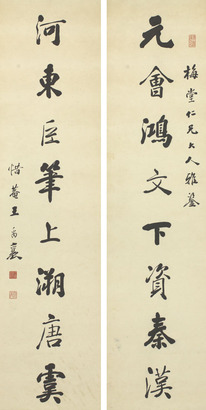 梅堂仁兄大人雅鑒
元會鴻文下資秦漢
河東巨筆上溯唐虞
惜菴王禹襄